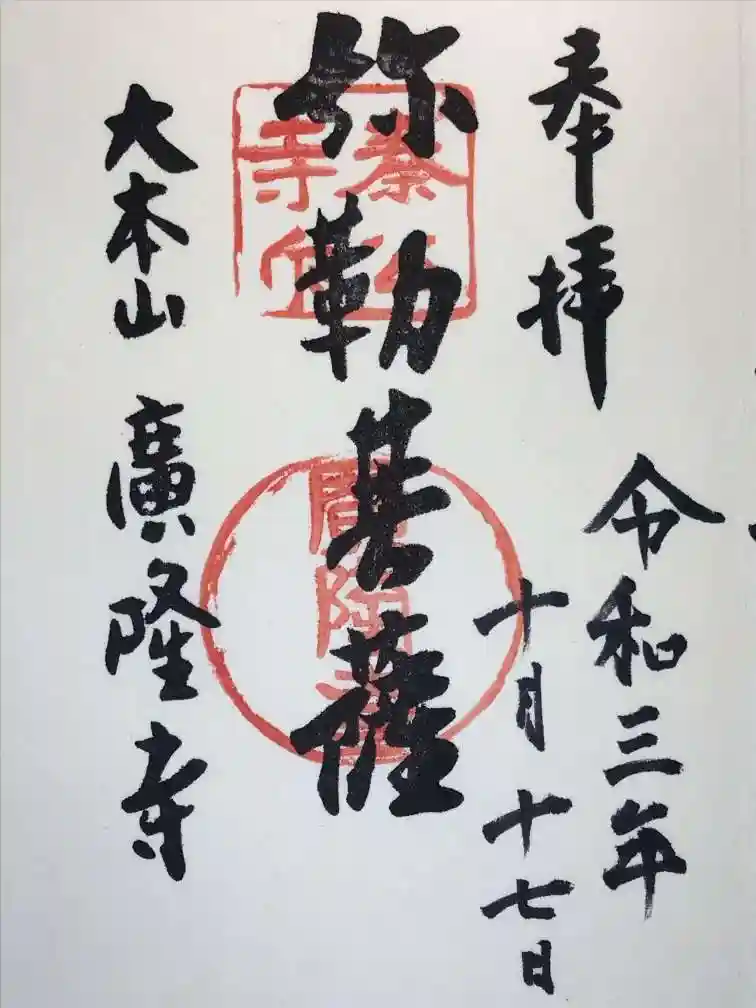 奉拝
令和三年
十月十七日
弥勒菩薩
大本山 廣隆寺
廣隆寺